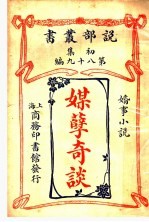 說部叢書
初集
第八十九編
婚事小說
媒孽奇談
上海商務印書館發行